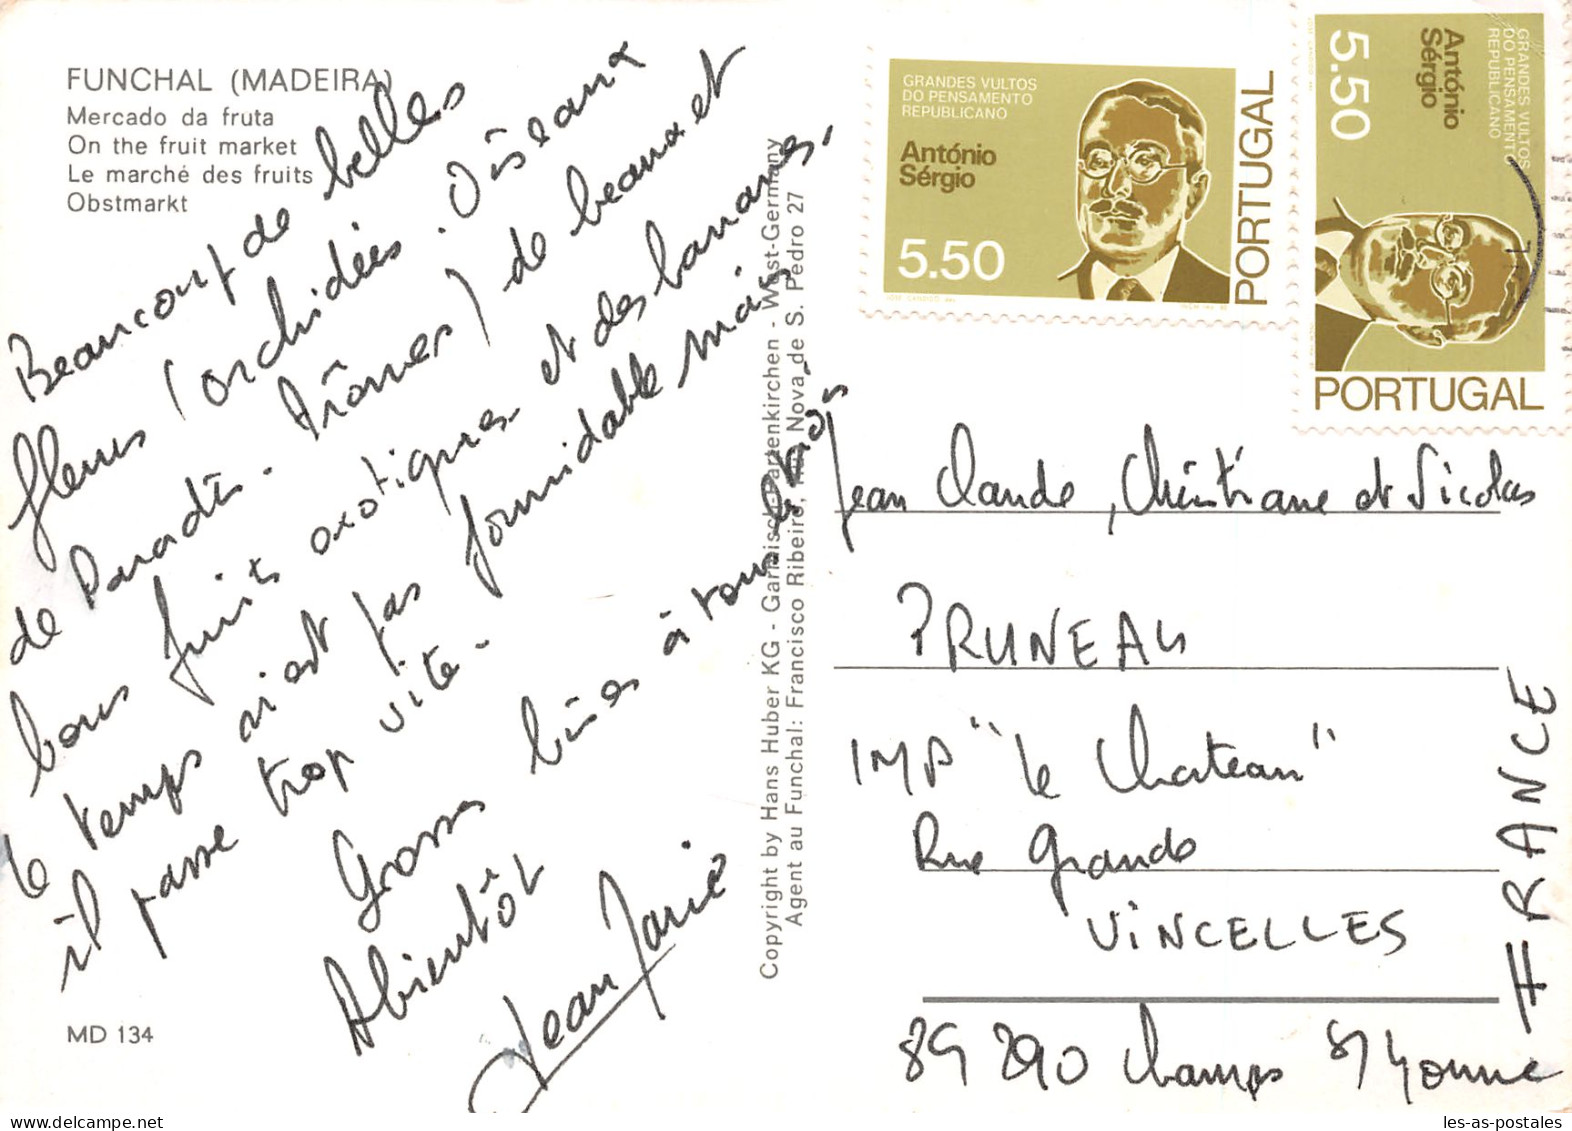 FUNCHAL (MADEIRA)
Mercado da fruta
On the fruit market
Le marché des fruits
Obstmarkt
Beaucoup de belles
fleurs (orchidées. Oiseaux
de Paradis. Arômes) de beaux et
bons fruits exotiques et des bananes.
le temps n'est pas formidable mais
il passe trop vite.
Grosses bises à tous les trois
Abientôt
Jean Marie
MD 134
Copyright by Hans Huber KG - Garmisch-Partenkirchen - West-Germany
Agent au Funchal: Francisco Ribeiro, Rua Nova de S. Pedro 27
GRANDES VULTOS
DO PENSAMENTO
REPUBLICANO
António
Sérgio
5.50
PORTUGAL
GRANDES VULTOS
DO PENSAMENTO
REPUBLICANO
António
Sérgio
5.50
PORTUGAL
Jean Claude, Christiane et Nicolas
PRUNEAU
IMP "Le Chateau"
Rue Grande
VINCELLES
89 290 Champs S/ Yonne
FRANCE
les-as-postales